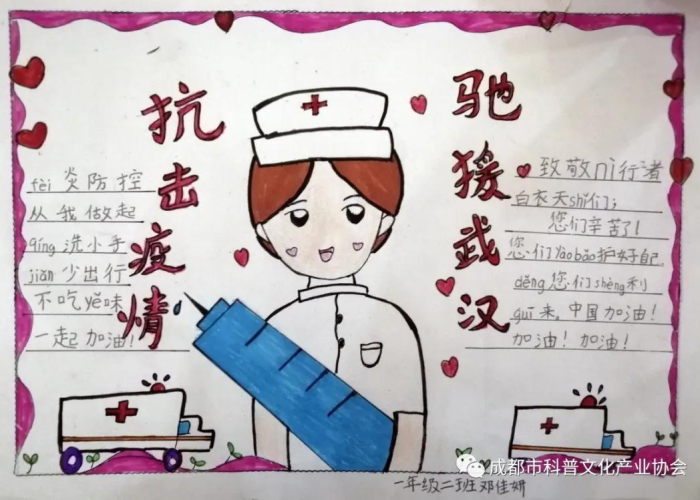 抗击疫情
驰援武汉
fèi 炎防控
从我做起
qíng 洗小手
jiǎn 少出行
不吃yě味
一起加油!
致敬nì行者
白衣天shǐ们;
您们辛苦了!
您们yào bǎo护好自己
děng您们shèng利
guī来,中国加油!
加油!加油!
一年级二班邓佳妍
成都市科普文化产业协会